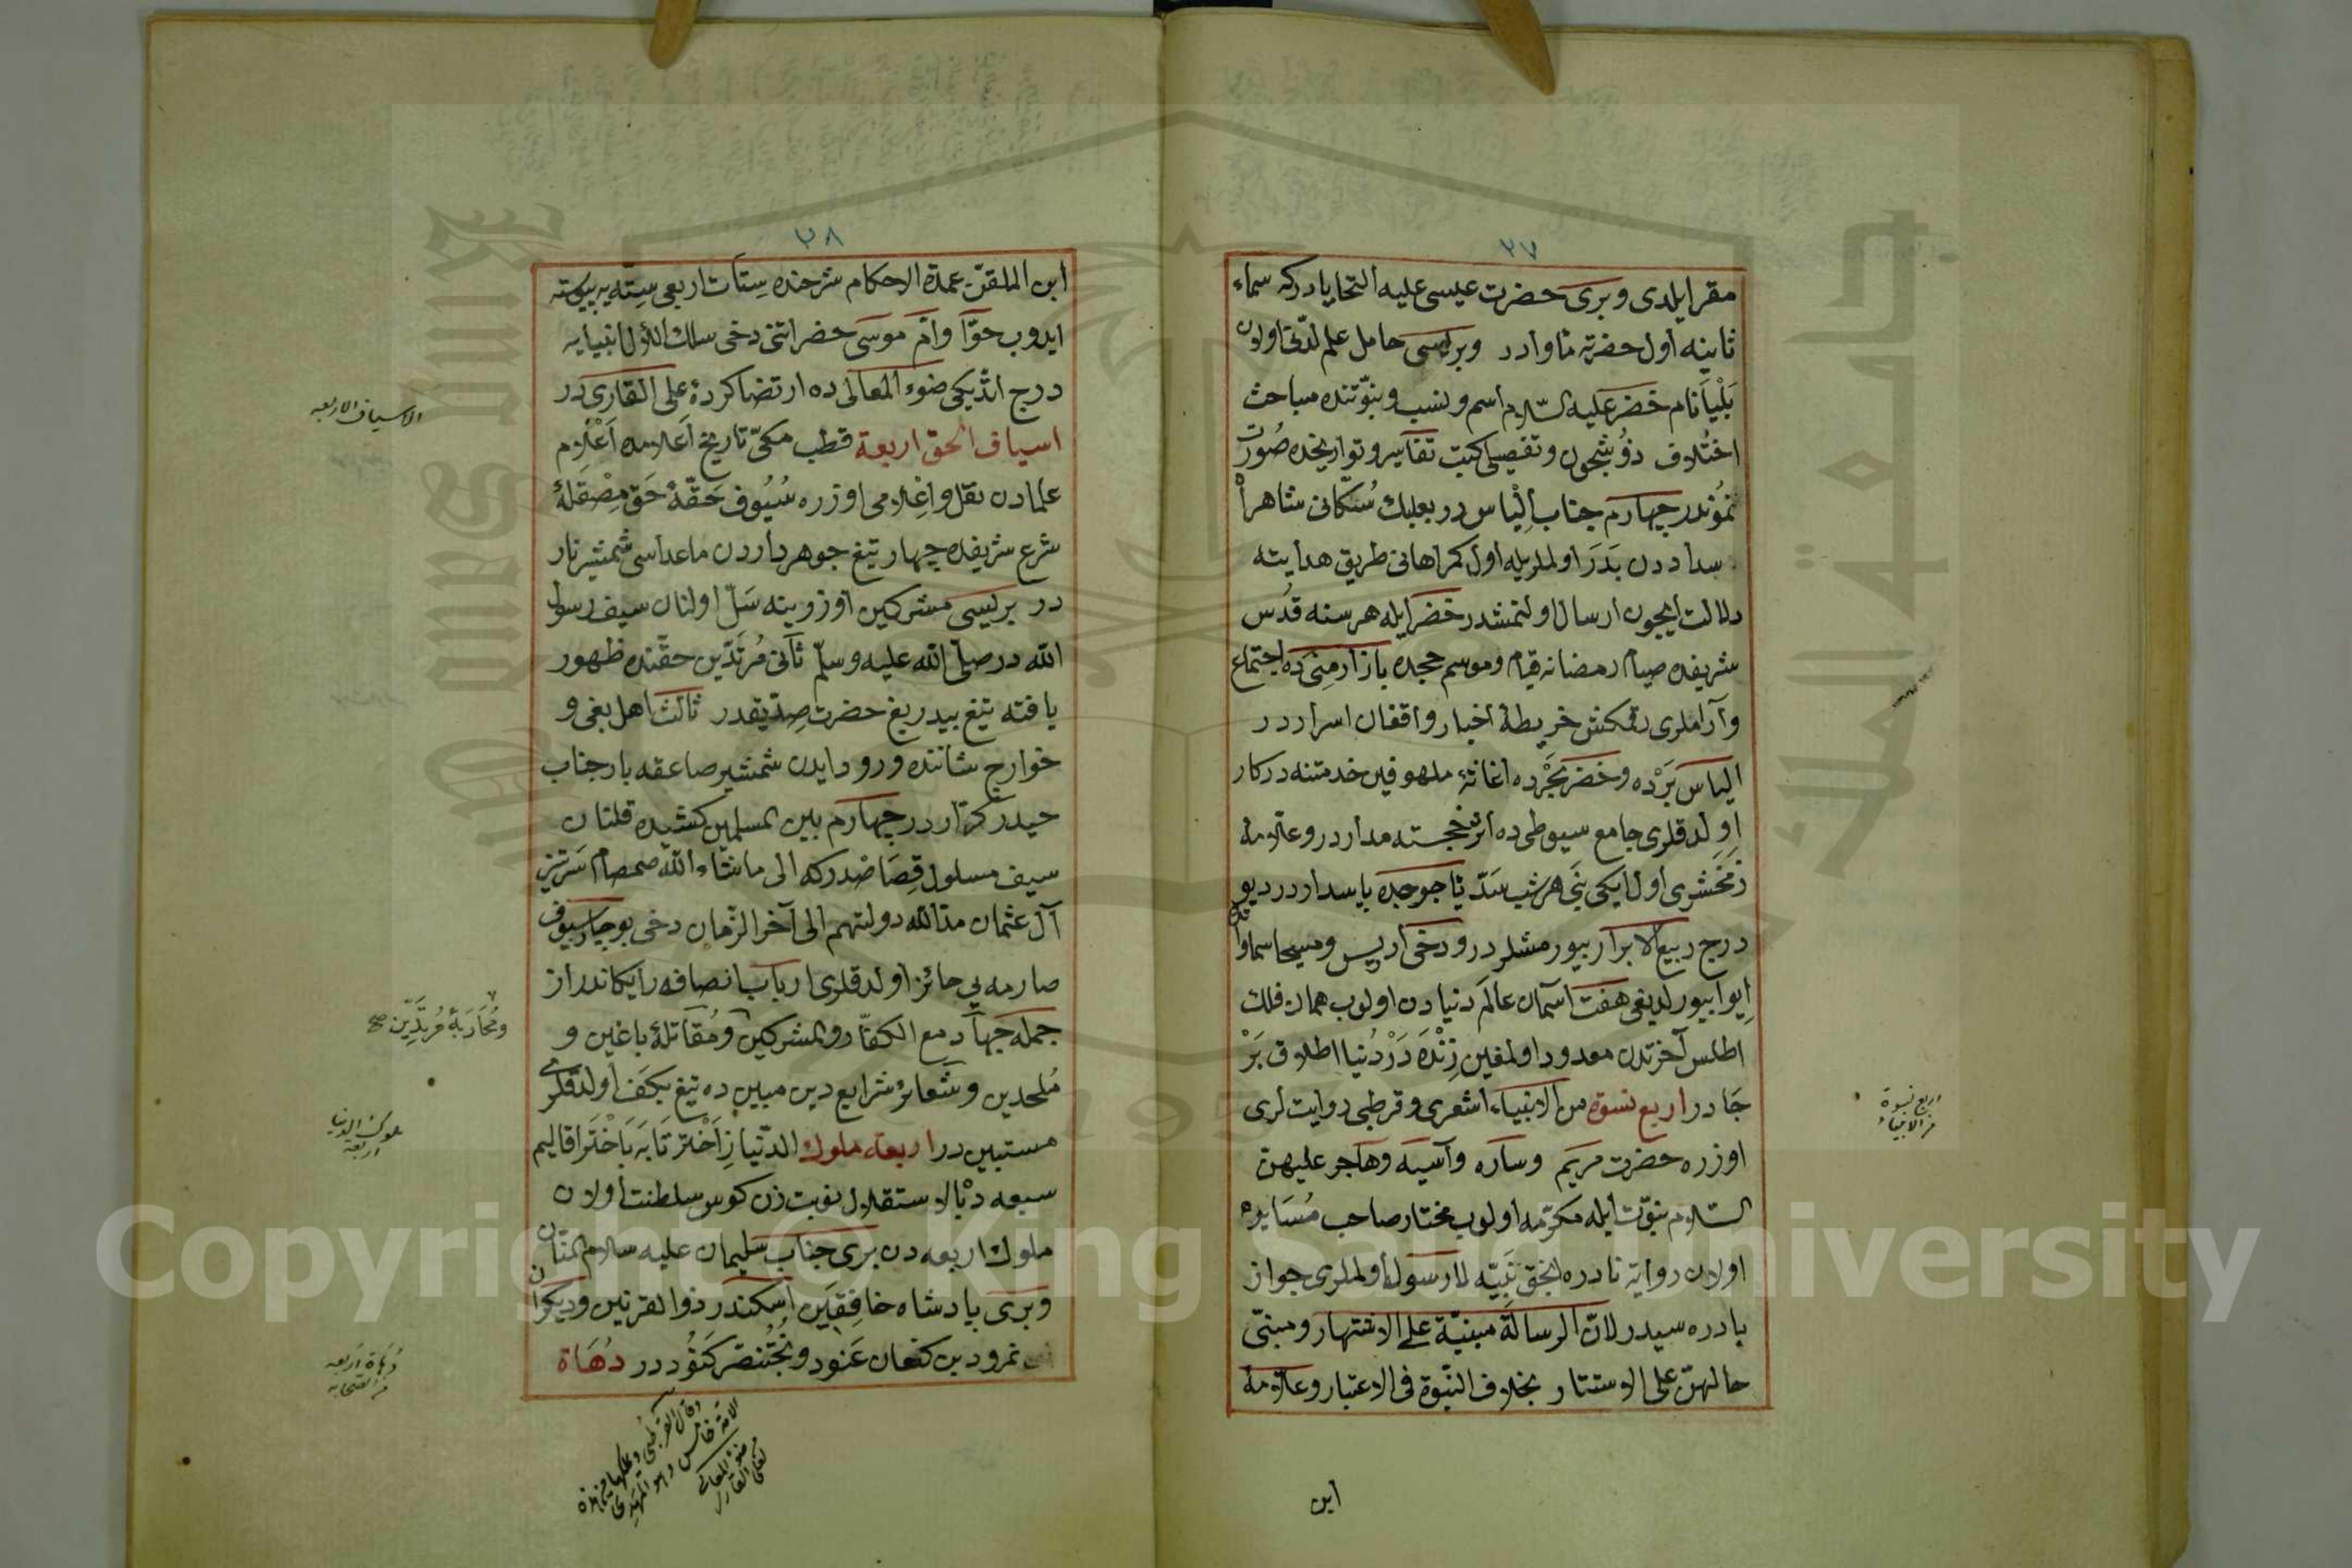 ٢٧
مقر ايلدى وبرى حضرت عيسى عليه التحايا در كه سماء
ثانيه اول حضرته مأوادر وبريسى حامل علم لدنى اولان
بَلْيَا نام خضر عليه السّلام اسم ونسب ونبوّتنده مباحث
اختلاف ذو شجون وتفصيلى كتب تفاسير وتواريخده صورت
نمُوندر چهارم جناب اِلْياس در بعلبك سُكّانى شاهراه
سداددن بَدَر اولملريله اول كمراهانى طريق هدايته
دلالت ايچون ارسال اولنمشدر خضر ايله هر سنه قُدس
شريفده صيام رمضانه قيام وموسم حجده بازار مِنى ده اجتماع
وآراملرى رقمكش خريطۀ اخبار واقفان اسرار در
الياس بَرْده وخضر بَحْرده اغاثۀ ملهوفين خدمتنه دركار
اولدقلرى جامع سيوطى ده اثر خجسته مداردر وعلّامۀ
زمَخشرى اول ايكى نبى هر شب سدّ يأجوجده پاسداردر ديو
درج ربيع الابرار بيورمشلردر ودخى ادريس ومسيحا سماواتده
اِيوا بيورلديغى هفت آسمان عالم دنيادن اولوب همان فلك
اطلس آخرتدن معدود اولمغين زِنْدَه دَرْ دُنيا اطلاق بَرْ
جَا در اربع نسوة من الانبياء اشعرى وقرطبى روايتلرى
اوزره حضرت مريم وساره وآسيه وهاجر عليهن
السّلام نبوّت ايله مكرّمه اولوب مختار صاحب مُسَايره
اولان روايۀ نادره الحق نَبيّه لا رسولة اولملرى جواز
باده سيدر لانّ الرسالة مبنيّة على الاشتهار ومبنى
حالهنّ على الاستتار بخلاف النبّوة فى الاعتبار وعلّامۀ
ابن
اربع نسوة
من الانبياء
٢٨
ابن الملقّن عمدة الاحكام شرحنده ستّات اربعى سِتّه يه پيوسته
ايدوب حوّا وامّ موسى حضراتنى دخى سلك لاؤل انبيايه
درج اتْديكى ضوء المعالى ده ارتضا كردۀ على القارى در
اسياف الحق اربعة قطب مكىّ تاريخ اَعلامده اَعْلام
علمادن نقل واِعْلامى اوزره سُيُوف حَقّۀ حَق مِصْقلۀ
شرع شريفده چهار تيغ جوهرداردن ماعداسى شمشير نار
در بريسى مشركين اوزرينه سَلّ اولنان سيف رسول
الله در صلّى الله عليه وسلّم ثانى مُرتَدّين حقّنده ظهور
يافته تيغ بيدريغ حضرت صِدّيقدر ثالث اهل بغى و
خوارج شاننده ورود ايدن شمشير صاعقه بار جناب
حيدر كرّار در چهارم بين المسلمين كشيده قلنان
سيف مسلول قِصَاصْدر كه الى ماشاء الله صمصام سَرتيز
آل عثمان مدّ الله دولتهم الى آخر الزّمان دخى بو چار سيوف
صارمه يى حائز اولدقلرى ارباب انصافه رايكاندر از
جمله جهاد مع الكفّار والمشركين ومُقاتلۀ باغين و
مُلحدين وشعائر شرايع دين مبين ده تيغ بكف اولدقلرى
مستبين در اربعه ملوك الدّنيا زِ اَخْتر تا بَه بَاخْتر اقاليم
سبعه ده بالاستقلال نوبت زن كوس سلطنت اولان
ملوك اربعه دن برى جناب سليمان عليه سلام المنّان
وبرى پادشاه خافِقَين اسكندر ذوا لقرنين وديكران
نمرود بن كنعان عَنود وبُختُنصّر كَنُوددر دُهَاة
الاسياف الاربعه
ومُحَارَبۀ مُرتَدِّين صح
ملوك الدنيا
اربعه
دُهَاة اربعه
من الصحابه
وقال القرطبى وسيملكها من هذه
الامّة خامس وهو المهدى
ضوء المعالى
لعلى القارى
Copyright © King Saud University
جامعة الملك سعود
King Saud University
1957